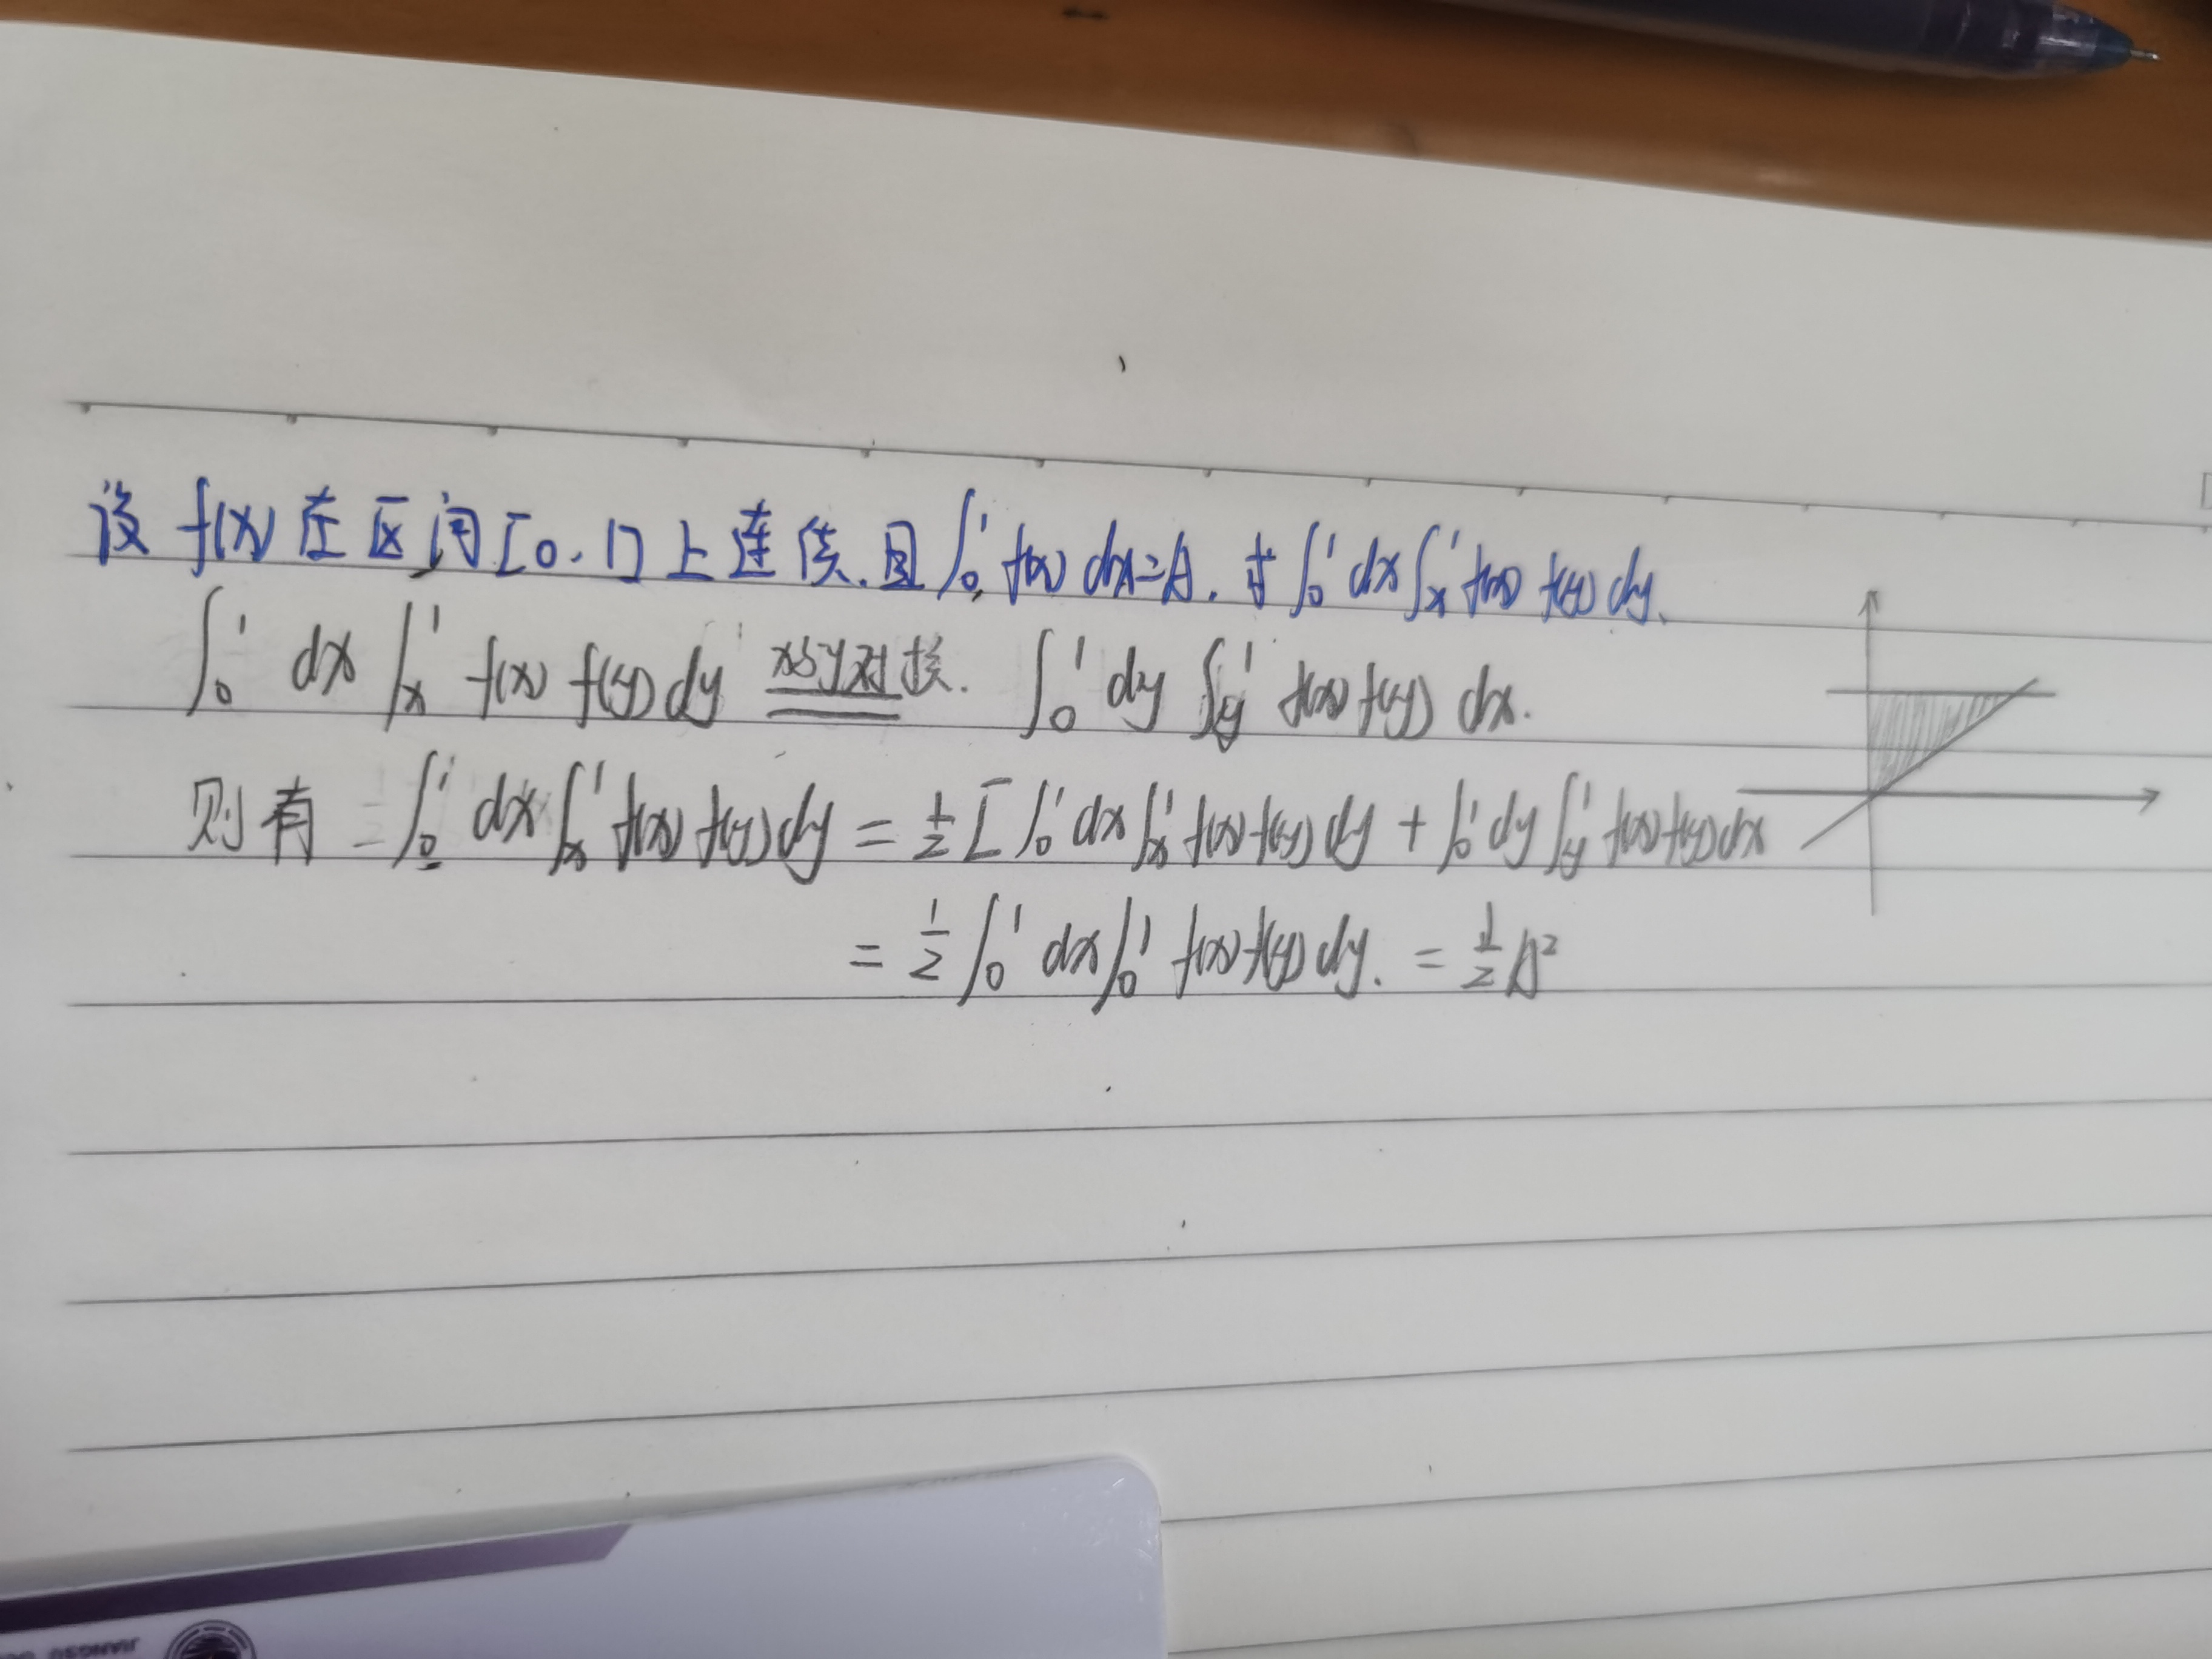 设 f(x) 在区间[0,1]上连续,且∫₀¹ f(x) dx=A,求∫₀¹ dx∫ₓ¹ f(x) f(y) dy.
∫₀¹ dx ∫ₓ¹ f(x) f(y) dy x与y对换. ∫₀¹ dy ∫_y¹ f(x) f(y) dx.
则有 ∫₀¹ dx ∫ₓ¹ f(x) f(y) dy = ½ [ ∫₀¹ dx ∫ₓ¹ f(x) f(y) dy + ∫₀¹ dy ∫_y¹ f(x) f(y) dx
= ½ ∫₀¹ dx ∫₀¹ f(x) f(y) dy. = ½ A²